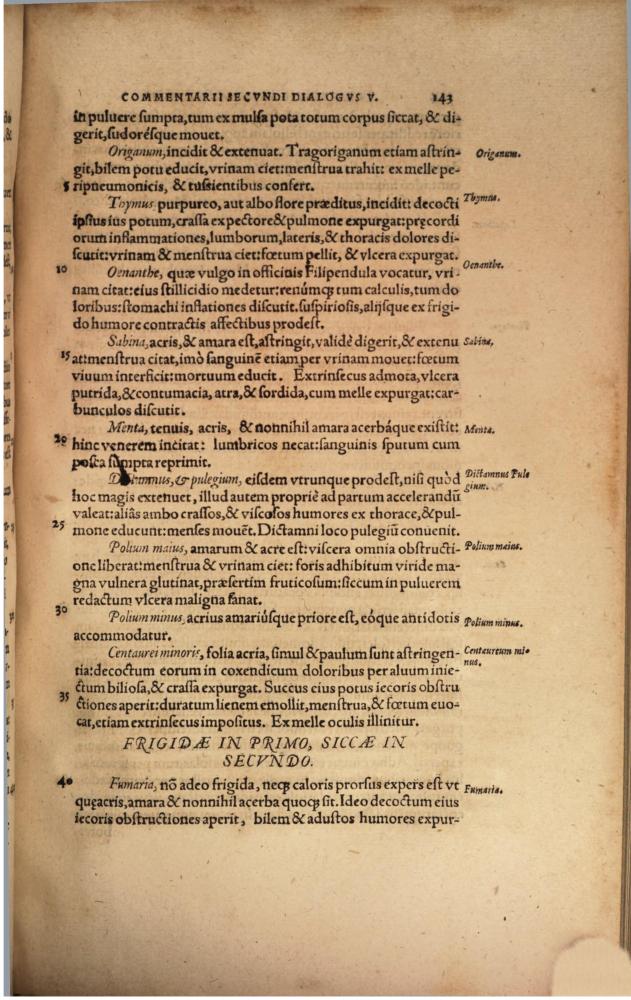 COMMENTARII SECVNDI DIALOGVS V. 143
in puluere sumpta, tum ex mulsa pota totum corpus siccat, & di-
gerit, sudorésque mouet.
Origanum, incidit & extenuat. Tragoriganum etiam astrin- Origanum.
git, bilem potu educit, vrinam ciet: menstrua trahit: ex melle pe-
5 ripneumonicis, & tussientibus confert.
Thymus purpureo, aut albo flore præditus, incidit: decocti Thymus.
ipsius ius potum, crassa expectore & pulmone expurgat: pręcordi
orum inflammationes, lumborum, lateris, & thoracis dolores di-
scutit: vrinam & menstrua ciet: fœtum pellit, & vlcera expurgat.
10 Oenanthe, quæ vulgo in officinis Filipendula vocatur, vri- Oenanthe.
nam citat: eius stillicidio medetur: renúmqꝫ tum calculis, tum do
loribus: stomachi inflationes discutit. suspiriosis, alijsque ex frigi-
do humore contractis affectibus prodest.
Sabina, acris, & amara est, astringit, validè digerit, & extenu Sabina.
15 at: menstrua citat, imò sanguinē etiam per vrinam mouet: fœtum
viuum interficit: mortuum educit. Extrinsecus admota, vlcera
putrida, & contumacia, atra, & sordida, cum melle expurgat: car-
bunculos discutit.
Menta, tenuis, acris, & nonnihil amara acerbáque existit: Menta.
20 hinc venerem incitat: lumbricos necat: sanguinis sputum cum
posca sumpta reprimit.
Dictamnus, & pulegium, eisdem vtrunque prodest, nisi quòd Dictamnus Pule
hoc magis extenuet, illud autem propriè ad partum accelerandū gium.
valeat: aliâs ambo crassos, & viscosos humores ex thorace, & pul-
25 mone educunt: menses mouēt. Dictamni loco pulegiū conuenit.
Polium maius, amarum & acre est: viscera omnia obstructi- Polium maius.
one liberat: menstrua & vrinam ciet: foris adhibitum viride ma-
gna vulnera glutinat, præsertim fruticosum: siccum in puluerem
redactum vlcera maligna sanat.
30 Polium minus, acrius amariúsque priore est, eóque antidotis Polium minus.
accommodatur.
Centaurei minoris, folia acria, simul & paulum sunt astringen- Centaureum mi-
tia: decoctum eorum in coxendicum doloribus per aluum inie- nus.
ctum biliosa, & crassa expurgat. Succus eius potus iecoris obstru
35 ctiones aperit: duratum lienem emollit, menstrua, & fœtum euo-
cat, etiam extrinsecus impositus. Ex melle oculis illinitur.
FRIGIDÆ IN PRIMO, SICCÆ IN
SECVNDO.
40 Fumaria, nō adeo frigida, neqꝫ caloris prorsus expers est vt Fumaria.
quęacris, amara & nonnihil acerba quoqꝫ sit. Ideo decoctum eius
iecoris obstructiones aperit, bilem & adustos humores expur-